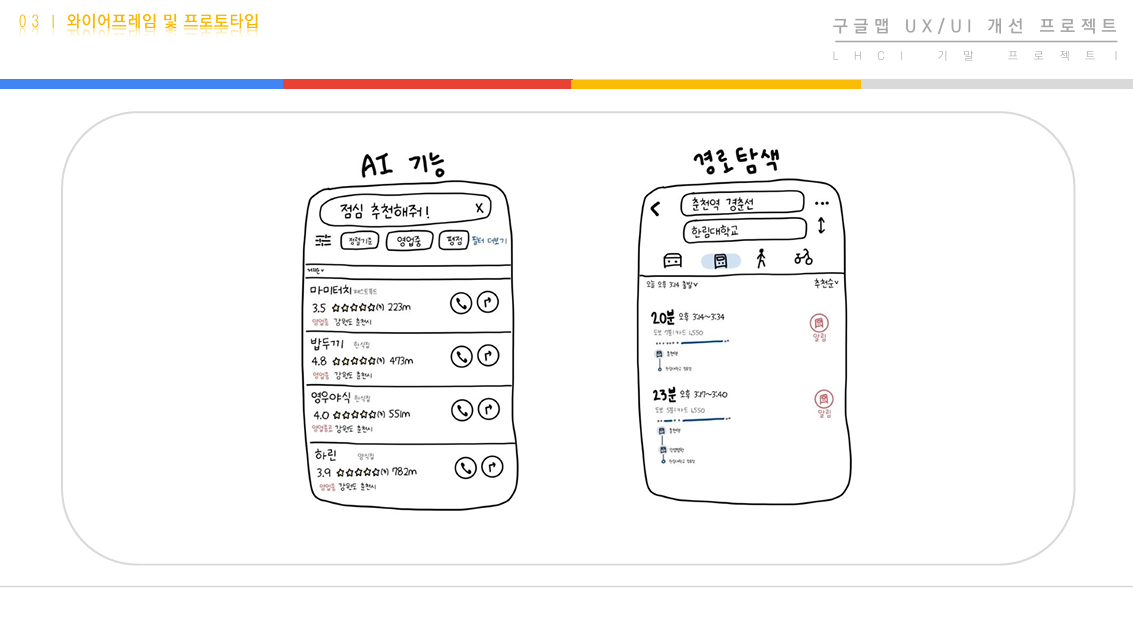 03 | 와이어프레임 및 프로토타입
구글맵 UX/UI 개선 프로젝트
LHCI 기말 프로젝트 I
AI 기능
점심 추천해줘! X
정렬기준 영업중 평점 필터 더보기
거리순
마미터치 패스트푸드
3.5 ☆☆☆☆☆(11) 223m
영업중 강원도 춘천시
밥두끼 한식집
4.8 ☆☆☆☆☆(11) 473m
영업중 강원도 춘천시
영우야식 한식집
4.0 ☆☆☆☆☆(11) 551m
영업종료 강원도 춘천시
하린 양식집
3.9 ☆☆☆☆☆(11) 782m
영업중 강원도 춘천시
경로탐색
춘천역 경춘선
한림대학교
오늘 오후 3:14 출발
추천순
20분 오후 3:14~3:34
도보 7분 | 카드 1,550
알림
춘천역
한림대학교 정문앞
23분 오후 3:17~3:40
도보 5분 | 카드 1,550
알림
춘천역
한림대학교 정문앞